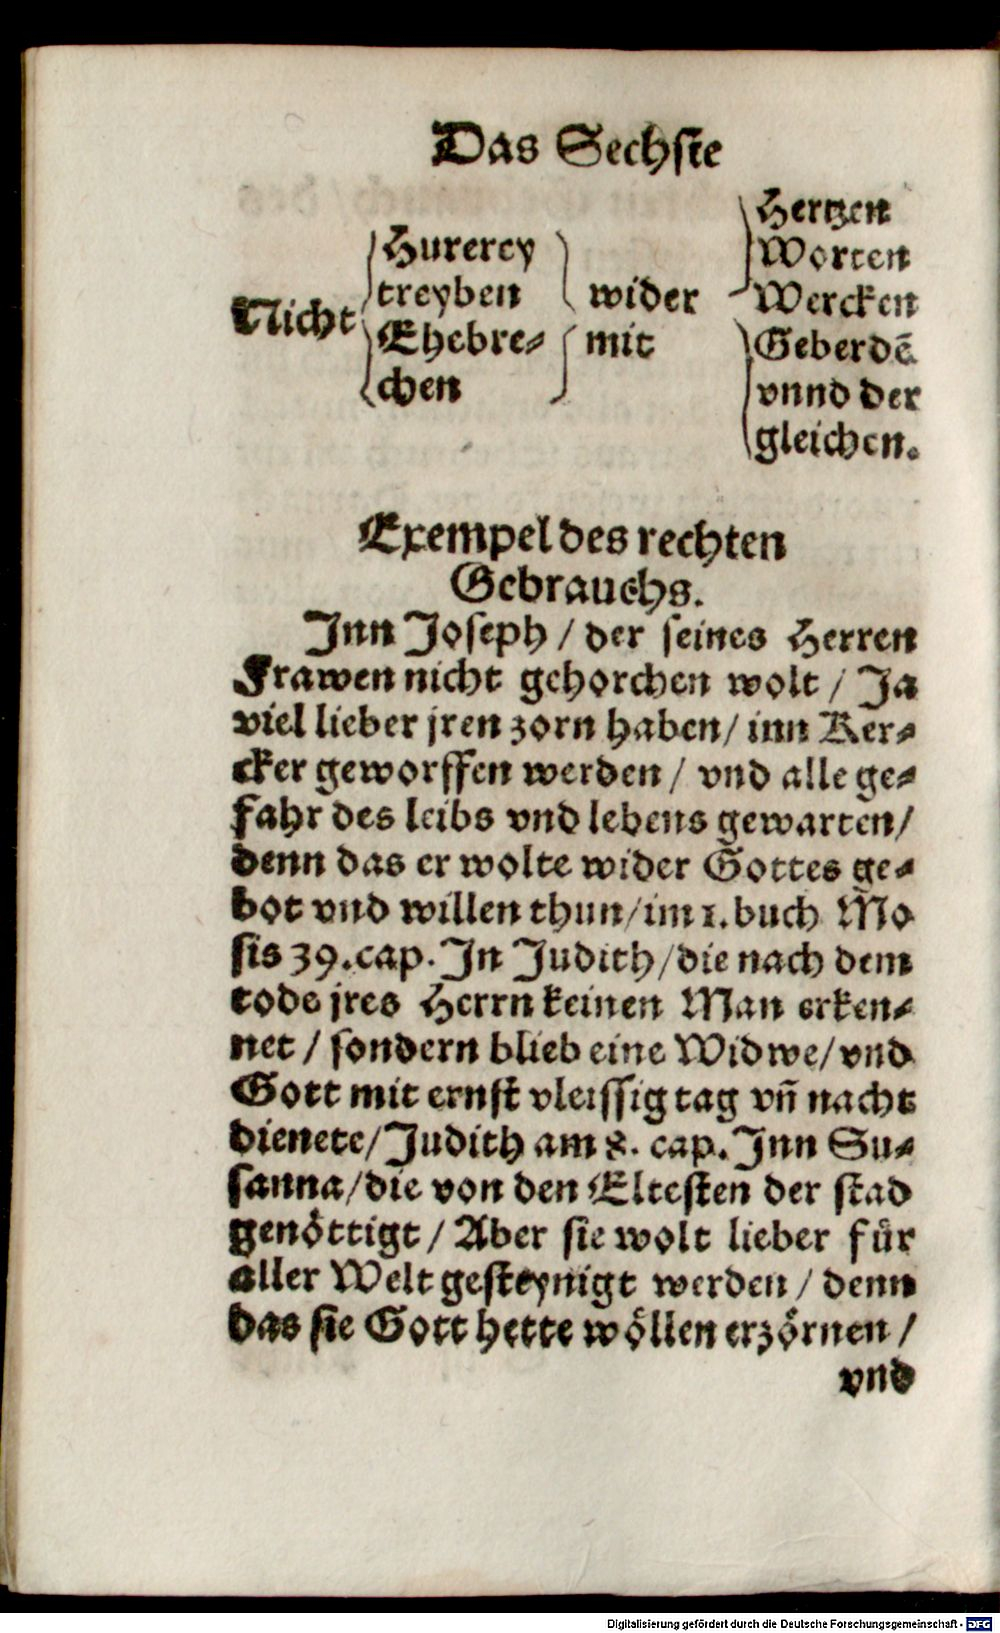 Das Sechste
Nicht
Hurerey
treyben
Ehebre-
chen
wider
mit
Hertzen
Worten
Wercken
Geberdē
vnnd der
gleichen.
Exempel des rechten
Gebrauchs.
Jnn Joseph / der seines Herren
Frawen nicht gehorchen wolt / Ja
viel lieber jren zorn haben / inn Ker-
cker geworffen werden / vnd alle ge-
fahr des leibs vnd lebens gewarten /
denn das er wolte wider Gottes ge-
bot vnd willen thun / im 1. buch Mo
sis 39. cap. Jn Judith / die nach dem
tode jres Herrn keinen Man erken-
net / sondern blieb eine Widwe / vnd
Gott mit ernst vleissig tag vñ nacht
dienete / Judith am 8. cap. Jnn Su-
sanna / die von den Eltesten der stad
genöttigt / Aber sie wolt lieber für
aller Welt gesteynigt werden / denn
das sie Gott hette wöllen erzörnen /
vnd
Digitalisierung gefördert durch die Deutsche Forschungsgemeinschaft - DFG